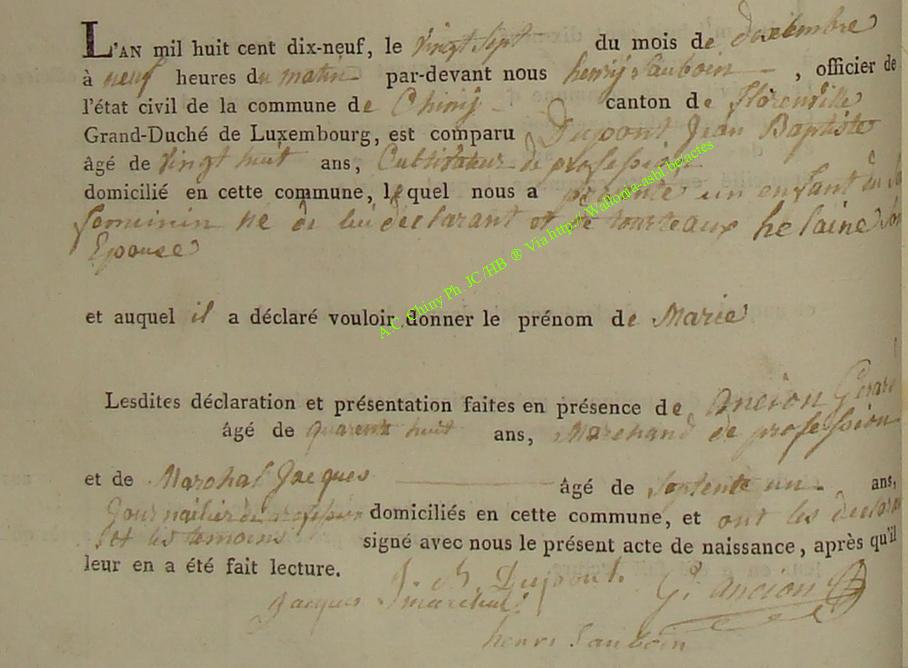 L'AN mil huit cent dix-neuf, le vingt sept du mois de decembre
à neuf heures du matin par-devant nous henry Sauboin, officier de
l'état civil de la commune de Chiny canton de florenville
Grand-Duché de Luxembourg, est comparu Dupont Jean Baptiste
âgé de vingt huit ans, Cultivateur de profession
domicilié en cette commune, lequel nous a présenté un enfant du
feminin né de lui déclarant et de tourteaux helaine Son
Epouse
et auquel il a déclaré vouloir donner le prénom de Marie
Lesdites déclaration et présentation faites en présence de ancion Gérard
âgé de quarente huit ans, Marchand de profession
et de Marchal Jacques âgé de septente un ans,
Journailier de profession domiciliés en cette commune, et ont les declarant
et les temoins signé avec nous le présent acte de naissance, après qu'il
leur en a été fait lecture.
J. B. Dupont. G. ancion
Jacques marchal
henri Sauboin
A.C. Chiny Ph. JC /HB ® Via http:// Wallonia-asbl be/actes